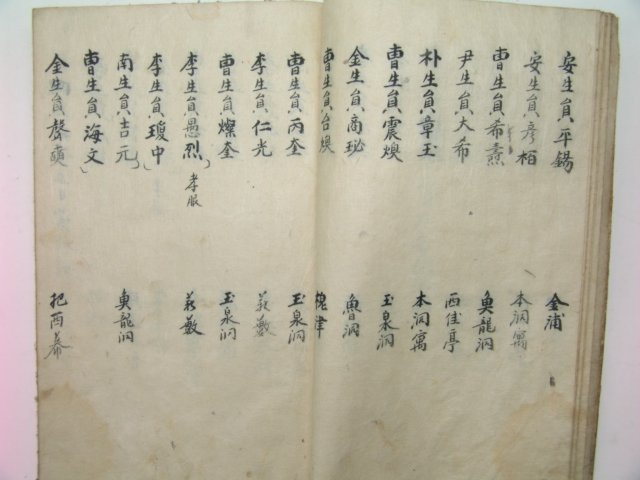 安生員平錫 金浦
安生員彦栢 本洞寓
曺生員希熹 奧龍洞
尹生員大希 西佳亭
朴生員章玉 本洞寓
曺生員震煥 玉泉洞
金生員商珌 魯洞
曺生員台煥 槐津
曺生員丙奎 玉泉洞
李生員仁光 薪藪
曺生員燦奎 玉泉洞
李生員愚烈 孝服 薪藪
李生員瓊中
南生員吉元 奧龍洞
曺生員海文
金生員馨奭 把西幕